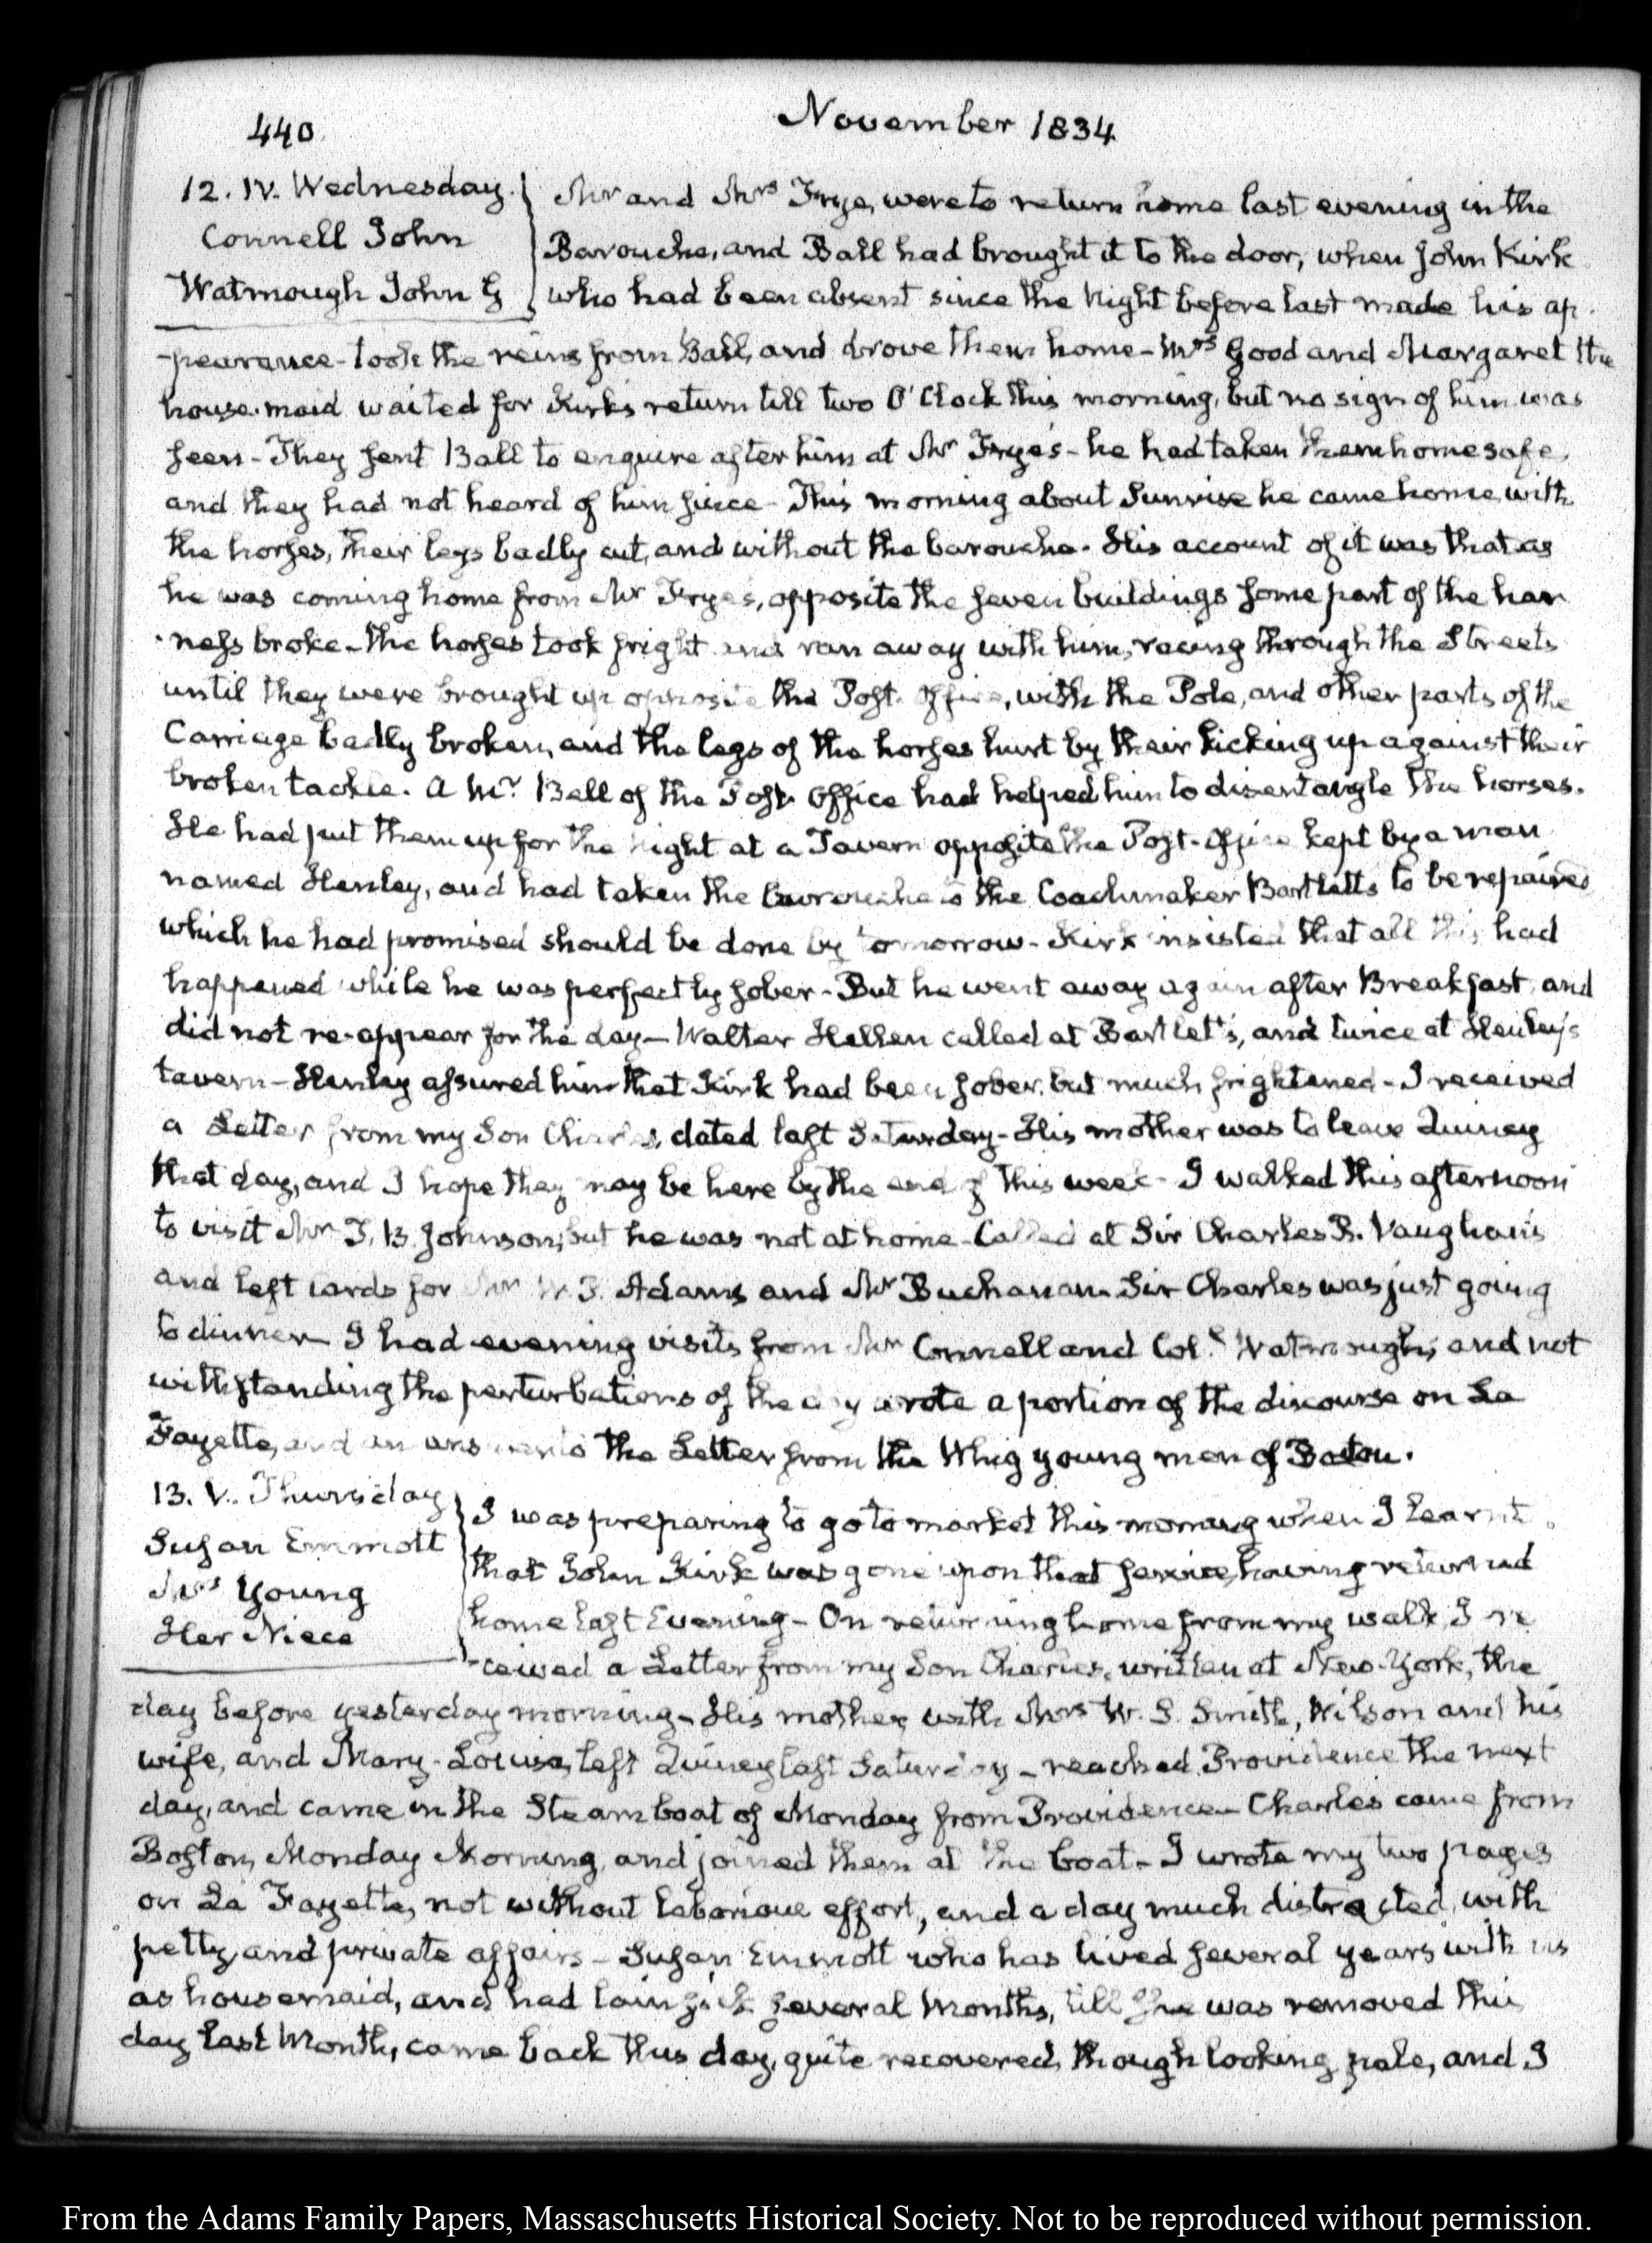 440
November 1834
12. IV. Wednesday.
Connell John
Watmough John G
Mr and Mrs Frye, were to return home last evening in the
Barouche, and Ball had brought it to the door, when John Kirk
who had been absent since the Night before last made his ap-
-pearance - took the reins from Ball, and drove them home - Mrs Good and Margaret the
house-maid waited for Kirk's return till two O'Clock this morning, but no sign of him was
seen - They sent Ball to enquire after him at Mr Frye's - he had taken them home safe,
and they had not heard of him since - This morning about Sunrise he came home, with
the horses, their legs badly cut, and without the barouche. His account of it was that as
he was coming home from Mr Frye's, opposite the seven buildings some part of the har
-ness broke - the horses took fright and ran away with him, racing through the Streets
until they were brought up opposite the Post-Office, with the Pole, and other parts of the
Carriage badly broken, and the legs of the horses hurt by their kicking up against their
broken tackle. A Mr. Ball of the Post Office had helped him to disentangle the horses.
He had put them up for the Night at a Tavern opposite the Post-Office kept by a man
named Henley, and had taken the barouche to the Coachmaker Bartlett's to be repaired
which he had promised should be done by tomorrow - Kirk insisted that all this had
happened while he was perfectly sober - But he went away again after Breakfast, and
did not re-appear for the day - Walter Hellen called at Bartlet's, and twice at Henley's
tavern - Henley assured him that Kirk had been sober, but much frightened - I received
a Letter from my Son Charles, dated last Saturday - His mother was to leave Quincy
that day, and I hope they may be here by the end of this week - I walked this afternoon
to visit Mr T. B. Johnson, but he was not at home - Called at Sir Charles R. Vaughan's
and left cards for Mr W. P. Adams and Mr Buchanan - Sir Charles was just going
to dinner - I had evening visits from Mr Connell and Col. Watmough, and not
withstanding the perturbations of the day wrote a portion of the discourse on La
Fayette, and an answer to the Letter from the Whig young men of Boston.
13. V. Thursday
Susan Emmott
Mrs Young
Her Niece
I was preparing to go to market this morning when I learnt
that John Kirk was gone upon that service, having returned
home last Evening - On returning home from my walk, I re
-ceived a Letter from my Son Charles, written at New-York, the
day before yesterday morning - His mother with Mrs W. S. Smith, Wilson and his
wife, and Mary-Louisa, left Quincy last Saturday - reached Providence the next
day, and came in the Steam boat of Monday from Providence - Charles came from
Boston, Monday Morning, and joined them at the boat - I wrote my two pages
on La Fayette, not without laborious effort, and a day much distracted, with
petty and private affairs - Susan Emmott who has lived several years with us
as housemaid, and had lain sick several Months, till she was removed this
day last Month, came back this day, quite recovered, though looking pale, and I
From the Adams Family Papers, Massaschusetts Historical Society. Not to be reproduced without permission.